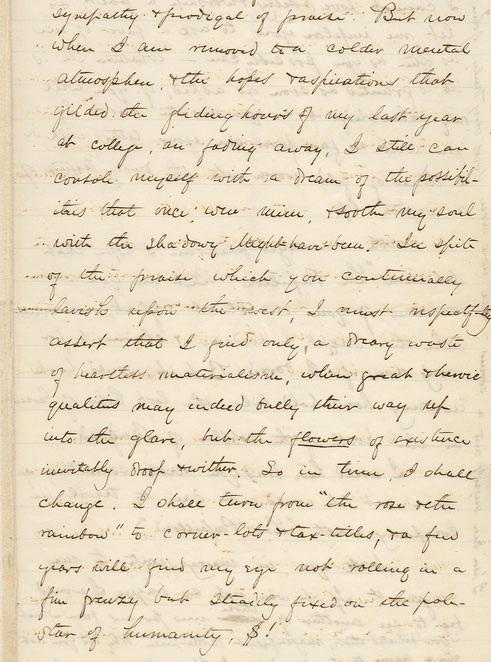 sympathy & prodigal of praise. But now
when I am removed to a colder mental
atmosphere, & the hopes & aspirations that
gilded the gliding hours of my last year
at college, are fading away, I still can
console myself with a dream of the possibil-
ities that once were mine, & soothe my soul
with the shadowy Might-have-been. In spite
of the praise which you continually
lavish upon the west, I must respectfully
assert that I find only a dreary waste
of heartless materialism, where great & heroic
qualities may indeed bully their way up
into the glare, but the flowers of existence
inevitably droop & wither. So in time, I shall
change. I shall turn from "the rose & the
rainbow" to corner-lots & tax-titles, & a few
years will find my eye not rolling in a
fine frenzy but steadily fixed on the pole-
star of humanity, $!